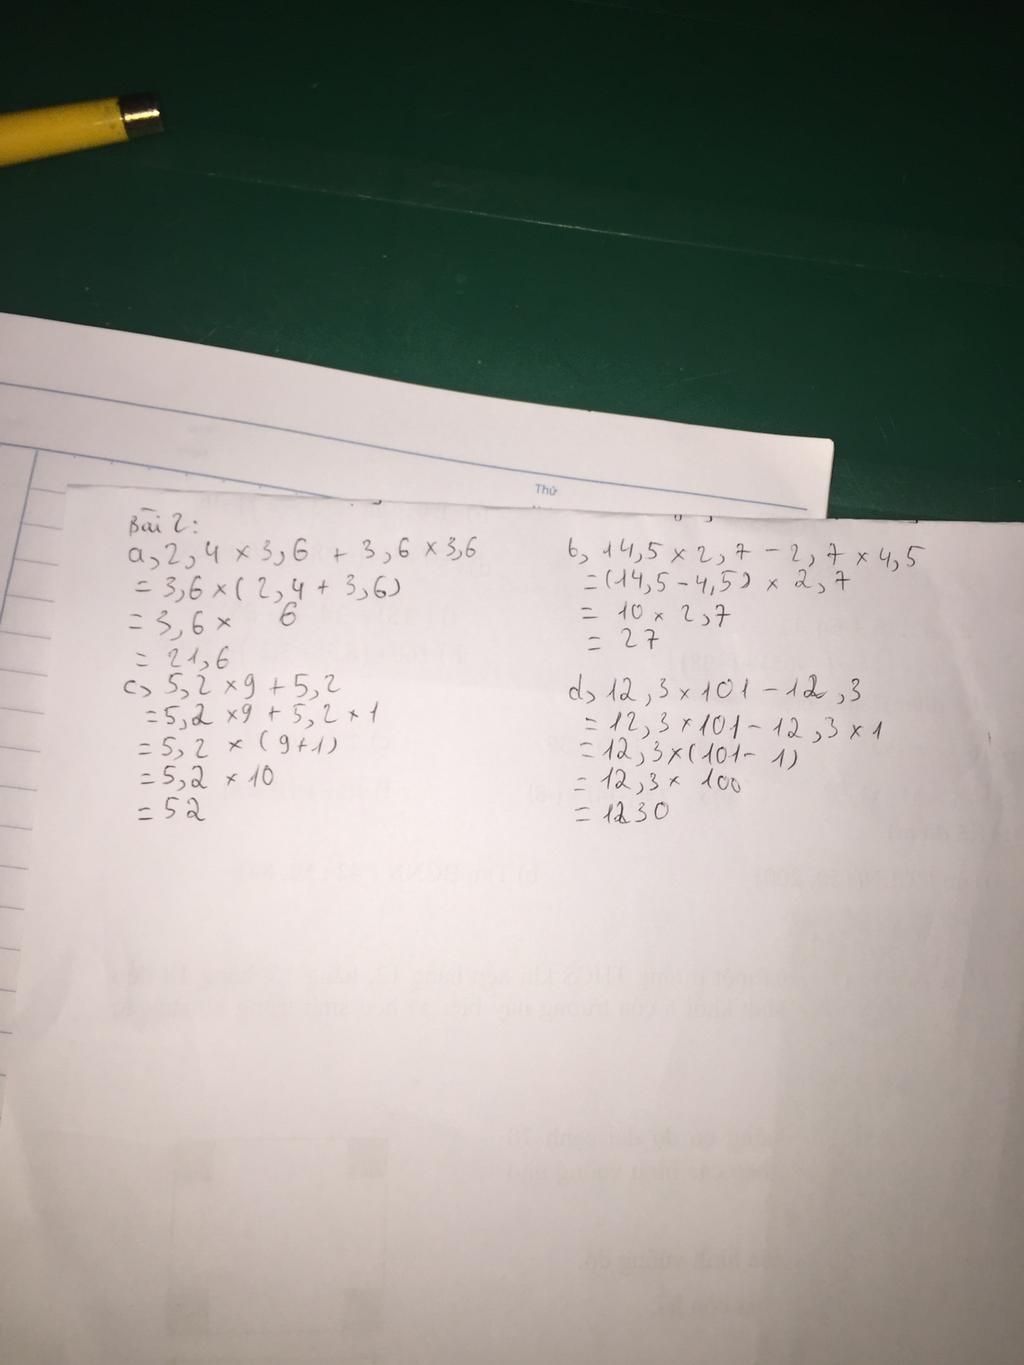 Thứ
Bài 2:
a, 2,4 × 3,6 + 3,6 × 3,6
= 3,6 × (2,4 + 3,6)
= 3,6 × 6
= 21,6
c, 5,2 × 9 + 5,2
= 5,2 × 9 + 5,2 × 1
= 5,2 × (9+1)
= 5,2 × 10
= 52
b, 14,5 × 2,7 - 2,7 × 4,5
= (14,5 - 4,5) × 2,7
= 10 × 2,7
= 27
d, 12,3 × 101 - 12,3
= 12,3 × 101 - 12,3 × 1
= 12,3 × (101 - 1)
= 12,3 × 100
= 1230